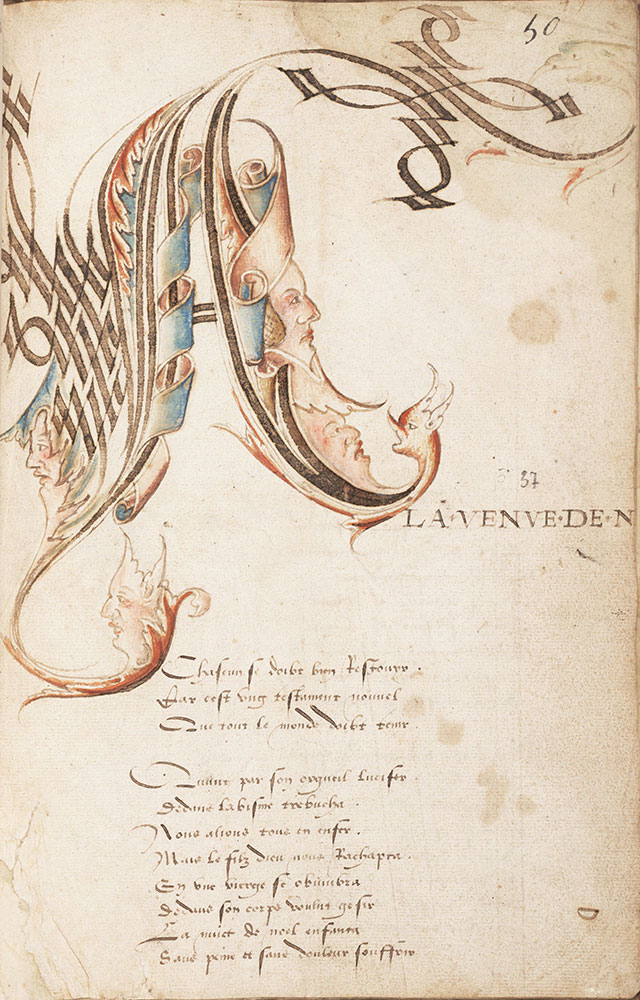 50
A
37
LA·VENVE·DE·N
Chascun se doibt bien Resjouyr .
Car cest ung testament nouvel
Que tout le monde doibt tenir .
Quant par son orgueil Lucifer .
Dedans labisme trebucha .
Nous alions tous en enfer .
Mais le filz dieu nous Rachapta .
En une vierge se obumbra
Dedans son corps voulut gesir
La nuict de noel enfanta
Sans peine et sans douleur souffrir